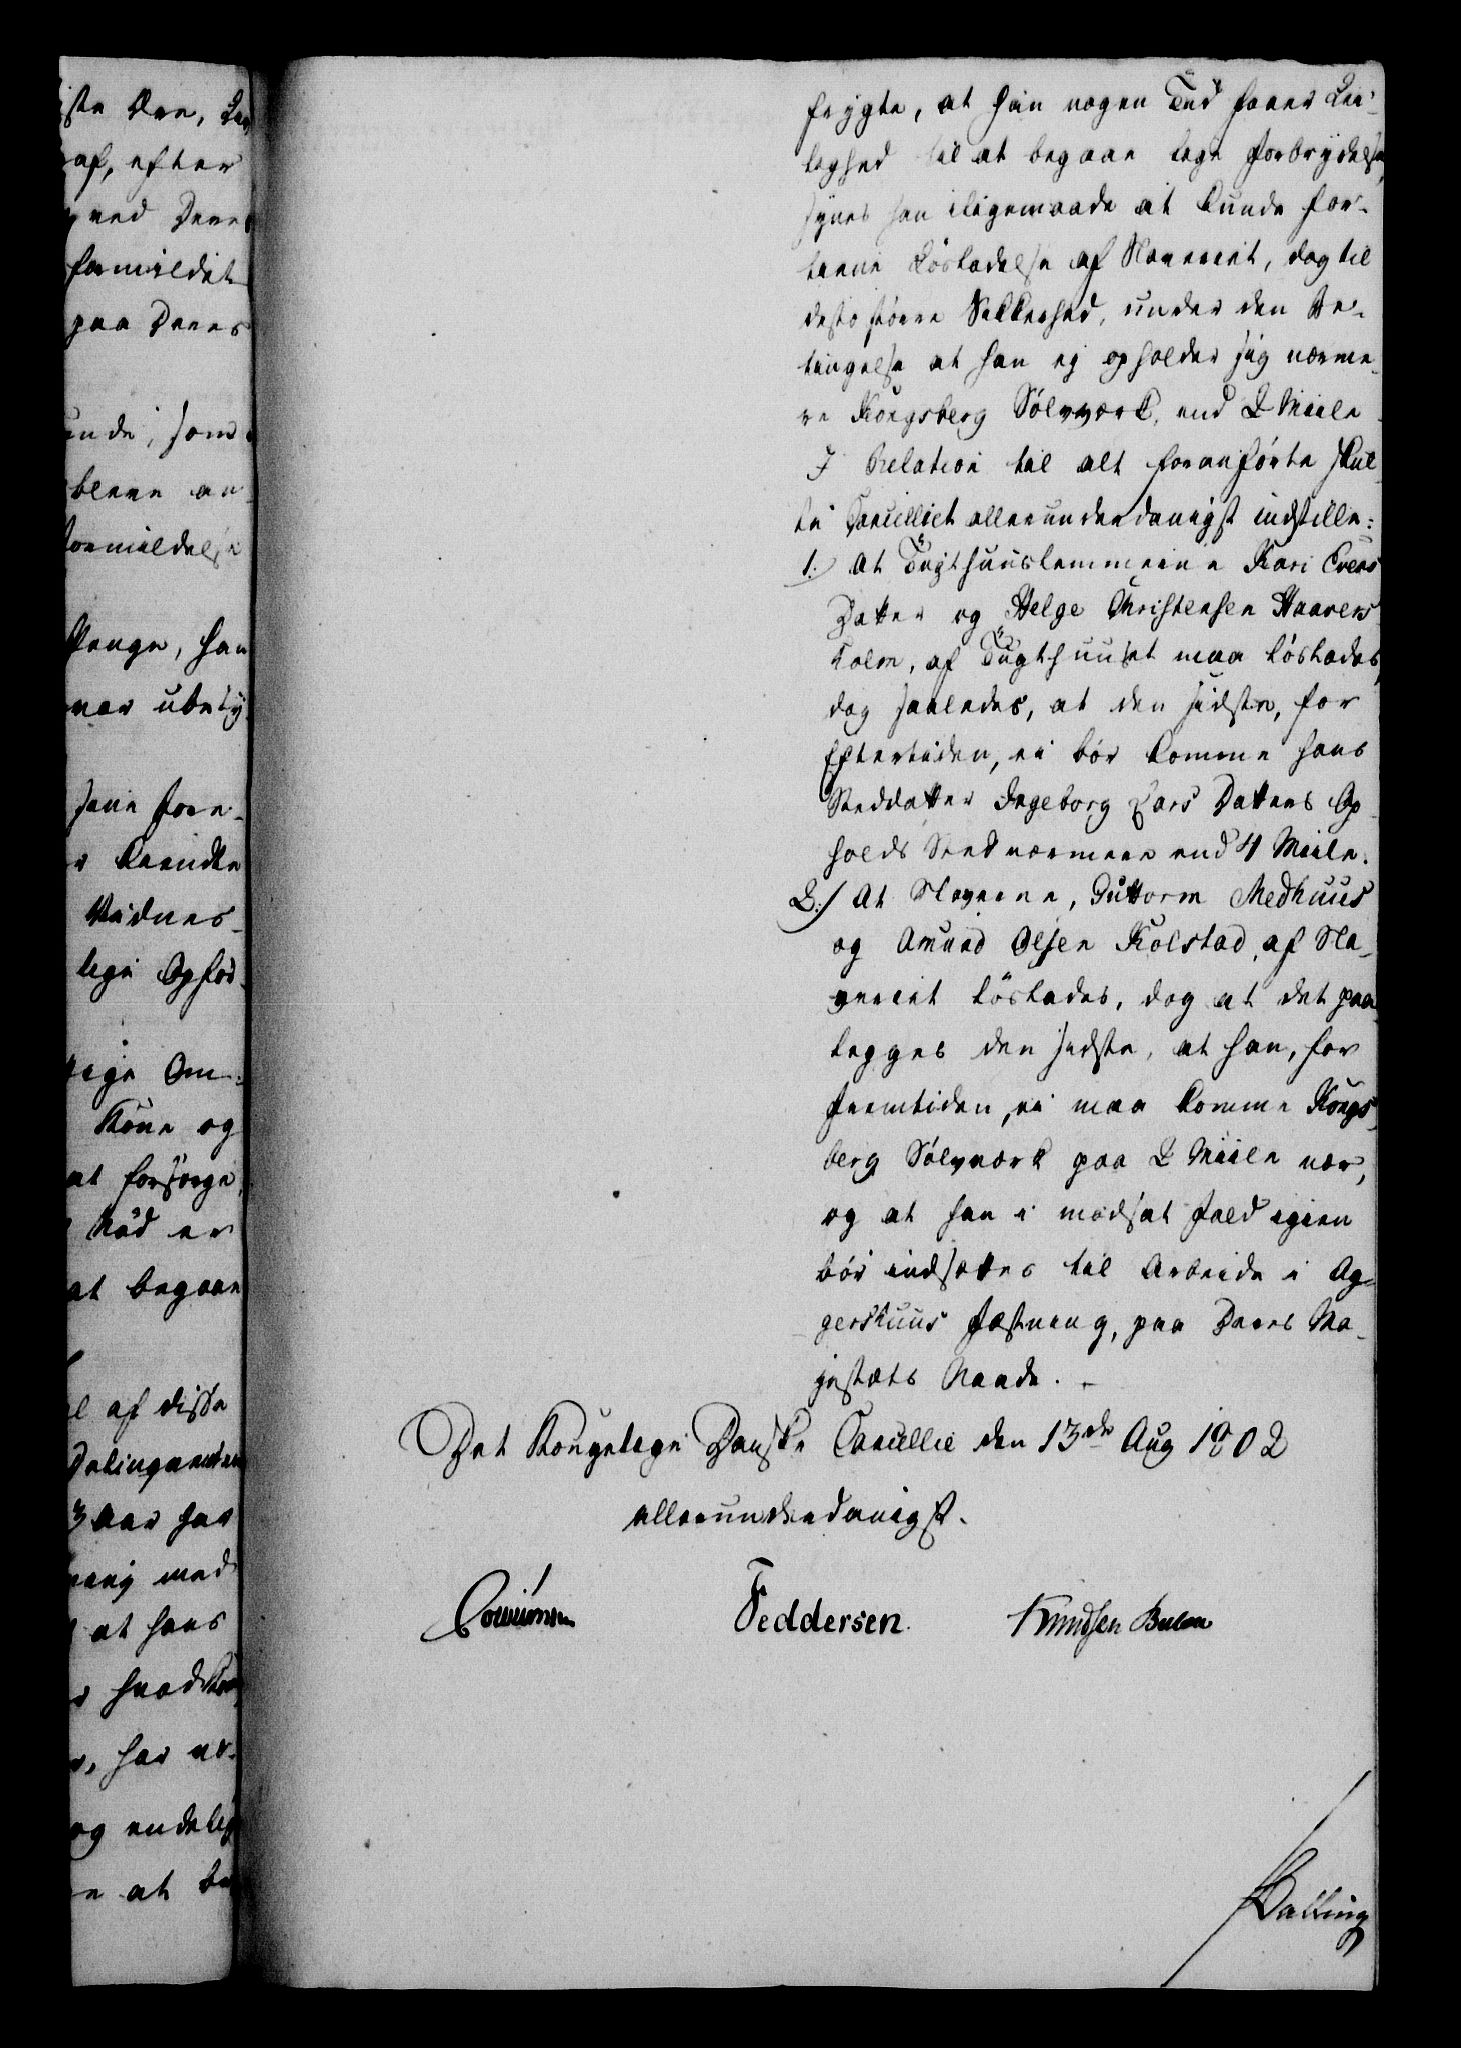 frygte, at han nogen Tid faaer Lei-
lighed til at begaae lige Forbrydelse,
synes han iligemaade at kunde for-
tiene Løsladelse af Slaveriet, dog til
desto større Sikkerhed, under den Be-
tingelse at han ej opholder sig nærme-
re Kongsberg Sølvværk, end 2 Miile
I Relation til alt foranførte skul-
de Cancelliet allerunderdanigst indstille:
1.) At Tugthuuslemmerne Kari Evers
Datter og Helge Christensen Haavers
holm, af Tugthuuset maa løslades,
dog saaledes, at den sidste, for
Eftertiden, ei bør komme hans
Steddatter Ingeborg Lars Datters Op-
holds Sted nærmere end 4 Miile.
2.) At Slaverne, Guttorm Medhuus
og Amund Olsen Kolstad, af Sla-
veriet løslades, dog at det paa-
legges den sidste, at han, for
Fremtiden, ei maa komme Kongs-
berg Sølvværk paa 2 Miile nær,
og at han i modsat Fald igien
bør indsættes til Arbeide i Ag-
gershuus Fæstning, paa Deres Ma-
jestæts Naade. -
Det Kongelige Danske Cancellie den 13de Aug 1802
allerunderdanigst.
Feddersen Knudsen
ste Deres
af, efter
ved Deres
formildet
paa Deres
unde, som
bleve an-
Formildelse
Penge, han
var ubety
sine fore-
kiendte
Vidnes-
lige Opfør-
ige Om-
Kone og
at forsørge,
Nød er
at begaae
af disse
Delinqventen
3 Aar har
med
at hans
har
og endelig
at